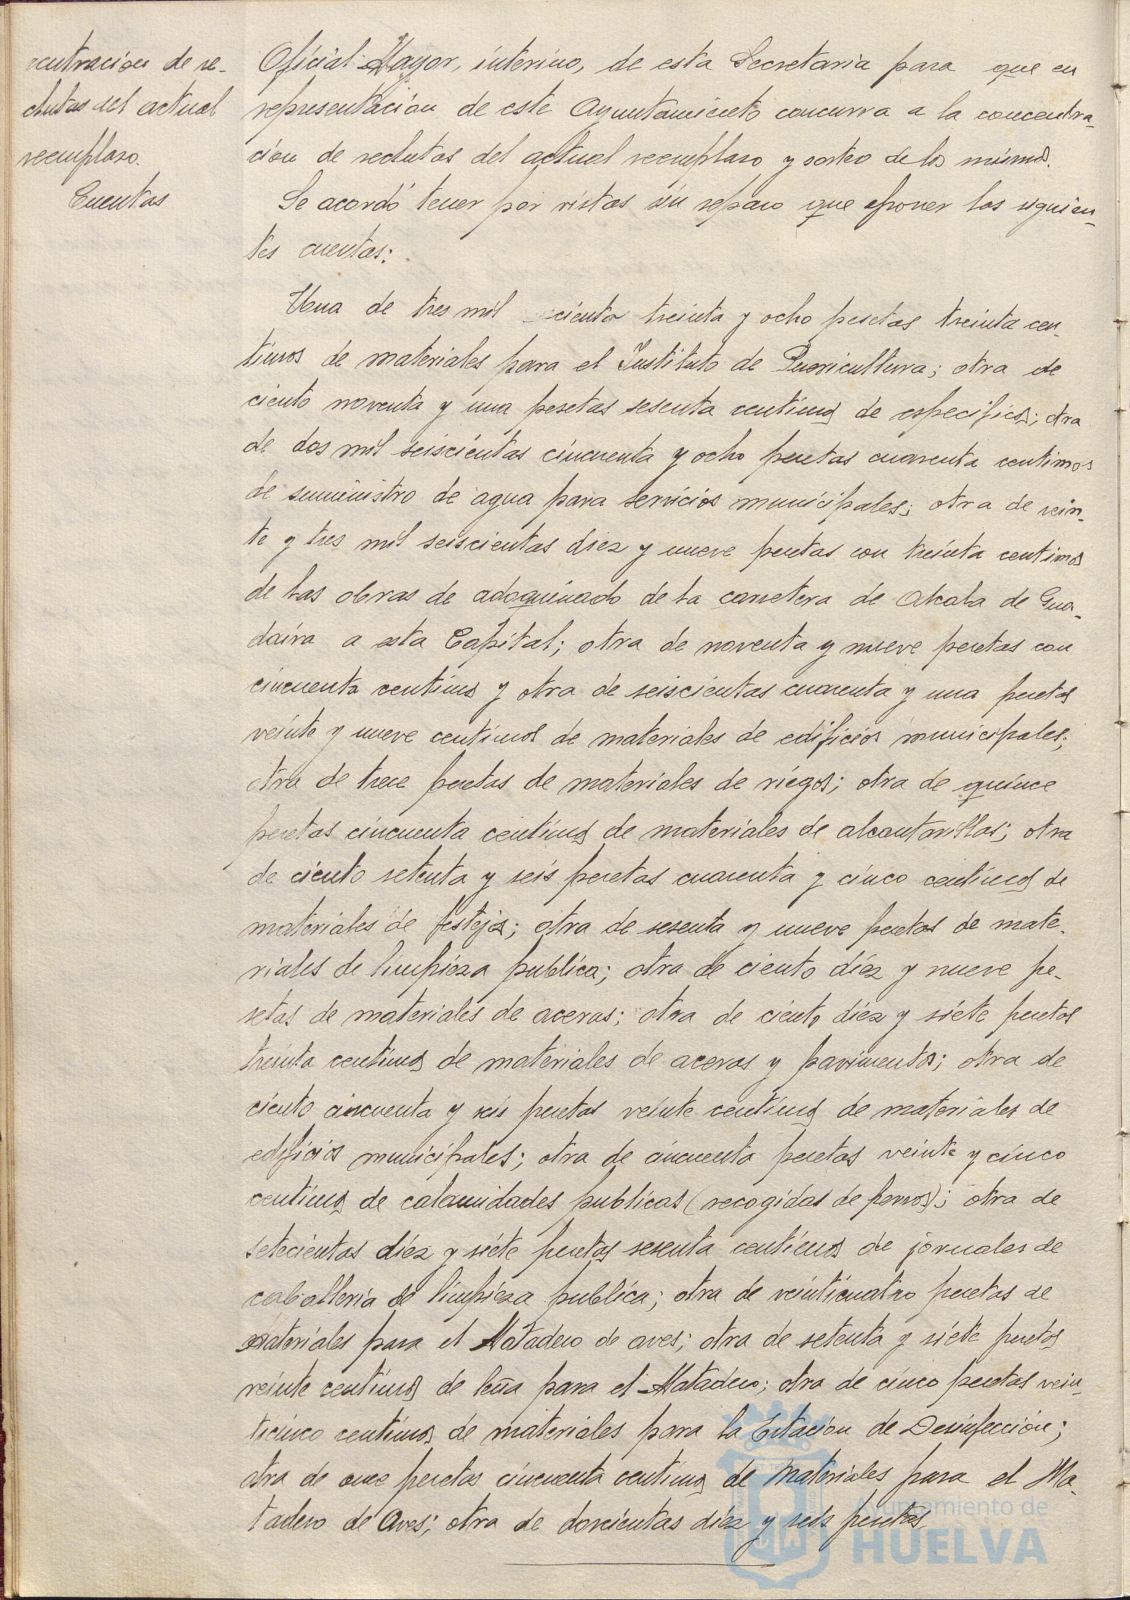 centracion de re-
clutas del actual
reemplazo.
Cuentas
Oficial Mayor, interino, de esta Secretaria para que en
representacion de este Ayuntamiento concurra a la concentra-
cion de reclutas del actual reemplazo y sorteo de los mismos.
Se acordó tener por vistas sin reparo que oponer las siguien-
tes cuentas:
Una de tres mil ciento treinta y ocho pesetas treinta cen-
timos de materiales para el Instituto de Puericultura; otra de
ciento noventa y una pesetas sesenta centimos de especificos; otra
de dos mil seiscientas cincuenta y ocho pesetas cuarenta centimos
de suministro de agua para servicios municipales; otra de vein-
te y tres mil seiscientas diez y nueve pesetas con treinta centimos
de las obras de adoquinado de la carretera de Alcala de Gua-
daira a esta Capital; otra de noventa y nueve pesetas con
cincuenta centimos y otra de seiscientas cuarenta y una pesetas
veinte y nueve centimos de materiales de edificios municipales;
otra de trece pesetas de materiales de riegos; otra de quince
pesetas cincuenta centimos de materiales de alcantarillas; otra
de ciento setenta y seis pesetas cuarenta y cinco centimos de
materiales de festejos; otra de sesenta y nueve pesetas de mate-
riales de limpieza publica; otra de ciento diez y nueve pe-
setas de materiales de aceras; otra de ciento diez y siete pesetas
treinta centimos de materiales de aceras y pavimentos; otra de
ciento cincuenta y seis pesetas veinte centimos de materiales de
edificios municipales; otra de cincuenta pesetas veinte y cinco
centimos de calamidades publicas (recogidas de perros); otra de
setecientas diez y siete pesetas sesenta centimos de jornales de
caballeria de limpieza publica; otra de veinticuatro pesetas de
materiales para el Matadero de aves; otra de setenta y siete pesetas
veinte centimos de leña para el Matadero; otra de cinco pesetas vein-
ticinco centimos de materiales para la Estacion de Desinfeccion;
otra de once pesetas cincuenta centimos de materiales para el Ma-
tadero de Aves; otra de doscientas diez y seis pesetas
Ayuntamiento de
HUELVA